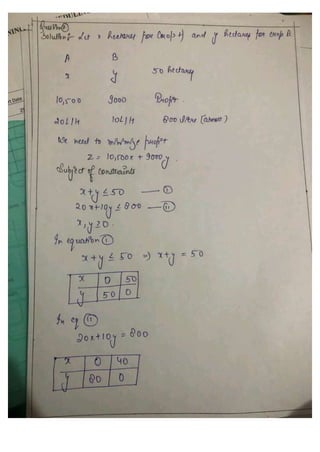 Question ②
Solution:- Let x hectares for Crop A and y hectares for crop B
A B
x y 50 hectares
10,500 9000 Profit.
20L/H 10L/H 800 litre
We need to minimize profit
Z = 10,500x + 9000y.
Subject of constraints
x+y ≤ 50 — ①
20x+10y ≤ 800 — ②
x, y ≥ 0.
In equation ①
x+y ≤ 50 ⇒ x+y = 50
x 0 50
y 50 0
In eq ②
20x+10y = 800
x 0 40
y 80 0